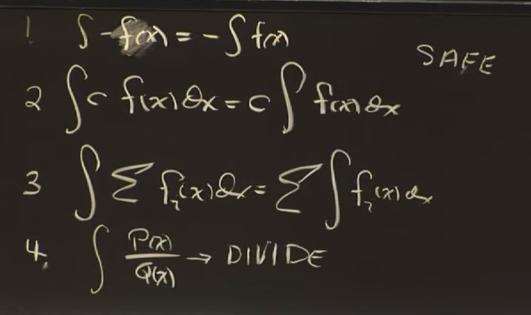 1. ∫-f(x) = -∫f(x)
SAFE
2 ∫c f(x)dx = c∫f(x)dx
3 ∫∑fᵢ(x)dx = ∑∫fᵢ(x)dx
4. ∫P(x)/Q(x) → DIVIDE